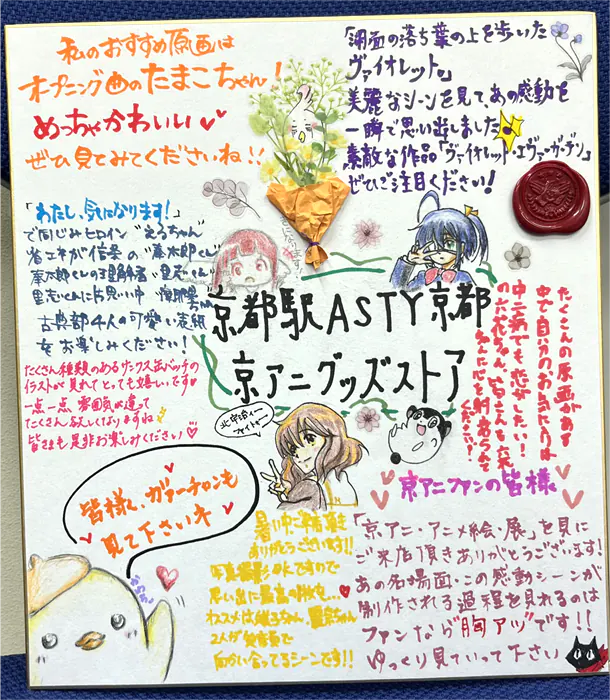 私のおすすめ原画は
オープニング画のたまこちゃん！
めっちゃかわいい
ぜひ見てみてくださいね！！
「湖面の落ち葉の上を歩いた
ヴァイオレット。」
美麗なシーンを見て、あの感動を
一瞬で思い出しました
素敵な作品「ヴァイオレット・エヴァーガーデン」
ぜひご注目ください！
「わたし、気になります！」
で同じみヒロイン"えるちゃん"
省エネが信条の"奉太郎くん"
奉太郎くんの理解者・里志くん
里志くんに片思い中
古典部4人の可愛い表紙
をお楽しみください！
たくさん種類のあるサンクス缶バッチの
イラストが見れてとっても嬉しいです
一点一点 雰囲気が違って
たくさん欲しくなりますね
皆さまも是非お楽しみください
京都駅ASTY京都
京アニグッズストア
たくさんの原画がある
中で自分のお気に入りは
中二病でも恋がしたい！
の六花ちゃん！
ください！
北宇治ー
ファイトー
皆様も、ガァーチャンも
見て下さいネ
暑い中ご来店頂き
ありがとうございます!!
写真撮影OKですので
思い出に最高の1枚を…
オススメは
2人が
向かい合ってるシーンです!!
京アニファンの皆様
「京・アニ・アニメ絵・展」を見に
ご来店頂きありがとうございます！
あの名場面・この感動シーンが
制作される過程を見れるのは
ファンなら"胸アツ"です!!
ゆっくり見ていって下さい